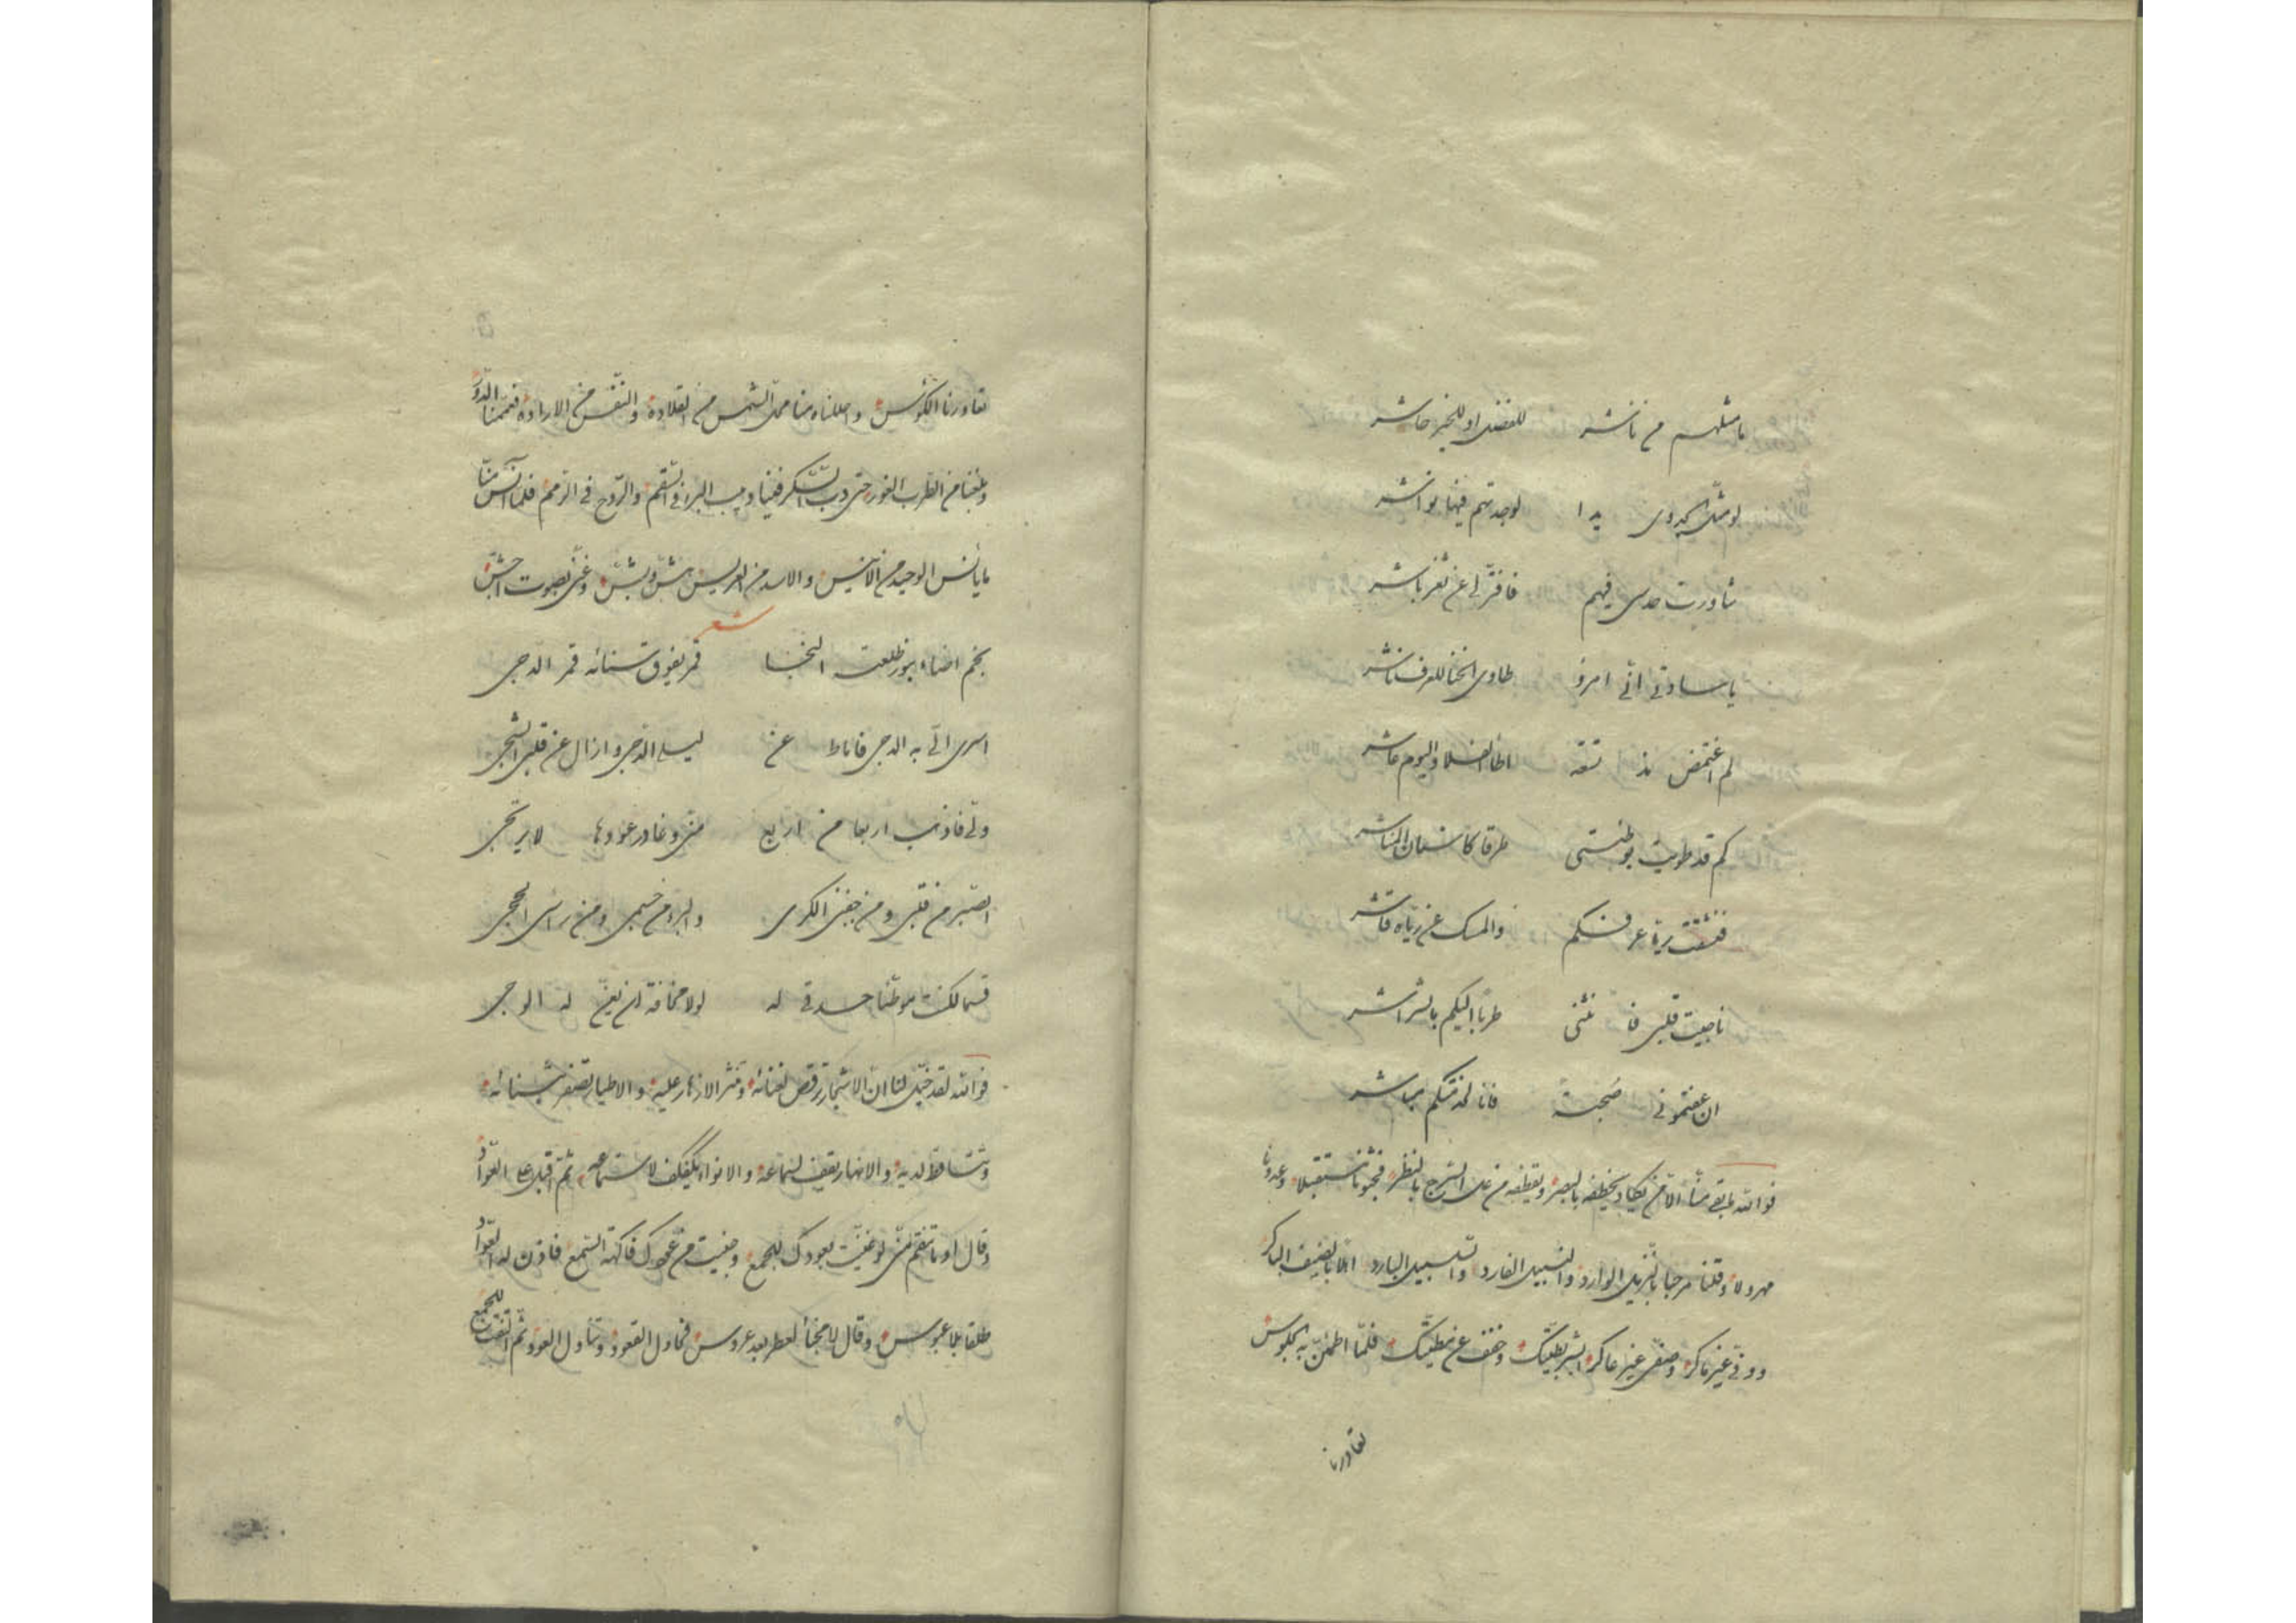 ما مثلهم من ناشر للفضل او للخير حاشر
لو مثل الجدوى يدا لوجدتهم فيها نواشر
شاورت حدسى فيهم فافتر لى عن ثغر باشر
يا سادتى انى امرؤ طاوى الخنا للعرف ناشر
لم اغتمض مذ تسعة واليوم عاشر
كم قد طويت بوطنتى طرقا كاسنان المناشر
فنشقت عرفكم والمسك عن رياه قاشر
ناجيت قلبى فانثنى طربا اليكم بالشراشر
ان عفتمونى صحبة فانا لخدمتكم مباشر
فوالله لم يبق منا الا من يكاد يخطفه بالبصر ويقطفه من على السرج بالنظر مستقبلا وعدونا
مهرولا وقلنا مرحبا بالنزيل الوارد والسبيل الفارد والسلسبيل البارد اهلا بالضيف الباكر
ووفى غير ماكر وصفى غير عاكر ابشر وخفف عن مطيتك فلما اطمئن به الجلوس
تعاورنا
تعاورنا الكؤس واحللناه منا محل الشمس من القلادة والنفس من الارادة فعمنا الدور
وبلغنا من الطرب الغور حتى دب السكر فينا دبيب البرء فى السقم والروح فى الرمم فلما آنس منا
ما يأنس الوحيد من الانيس والاسد من العريس هش وبش وغنى بصوت اجش
شعر
نجم اضاء بنور طلعته الخبا قمر يفوق سنائه قمر الدجى
اسرى الى به الدجى فاماط عن ليلى الدجى وازال عن قلبى الشجى
ولى فاذهب اربعا من اربع منى وغادر عودها لا يرتجى
الصبر من قلبى ومن جفنى الكرى والبرء من جسمى ومن راسى الحجى
قسما لكنت موطئا حدقى له لولا مخافة ان يعن له الوجى
فوالله لقد خيل لنا ان الاشجار ترقص لغنائه وتنثر الازهار عليه والاطيار تصفر
وتتساقط لديه والانهار يقف لسماعه والانواء يكفكف لاستماعه ثم اقبل على العواد
وقال لو غنيت بعودك للجمع وجنيت من فاكهة السمع فاذن له العواد
طلقا بلا عبوس وقال لا مخبأ لعطر بعد عروس فحاول القعود وتناول العود ثم التفت للجمع